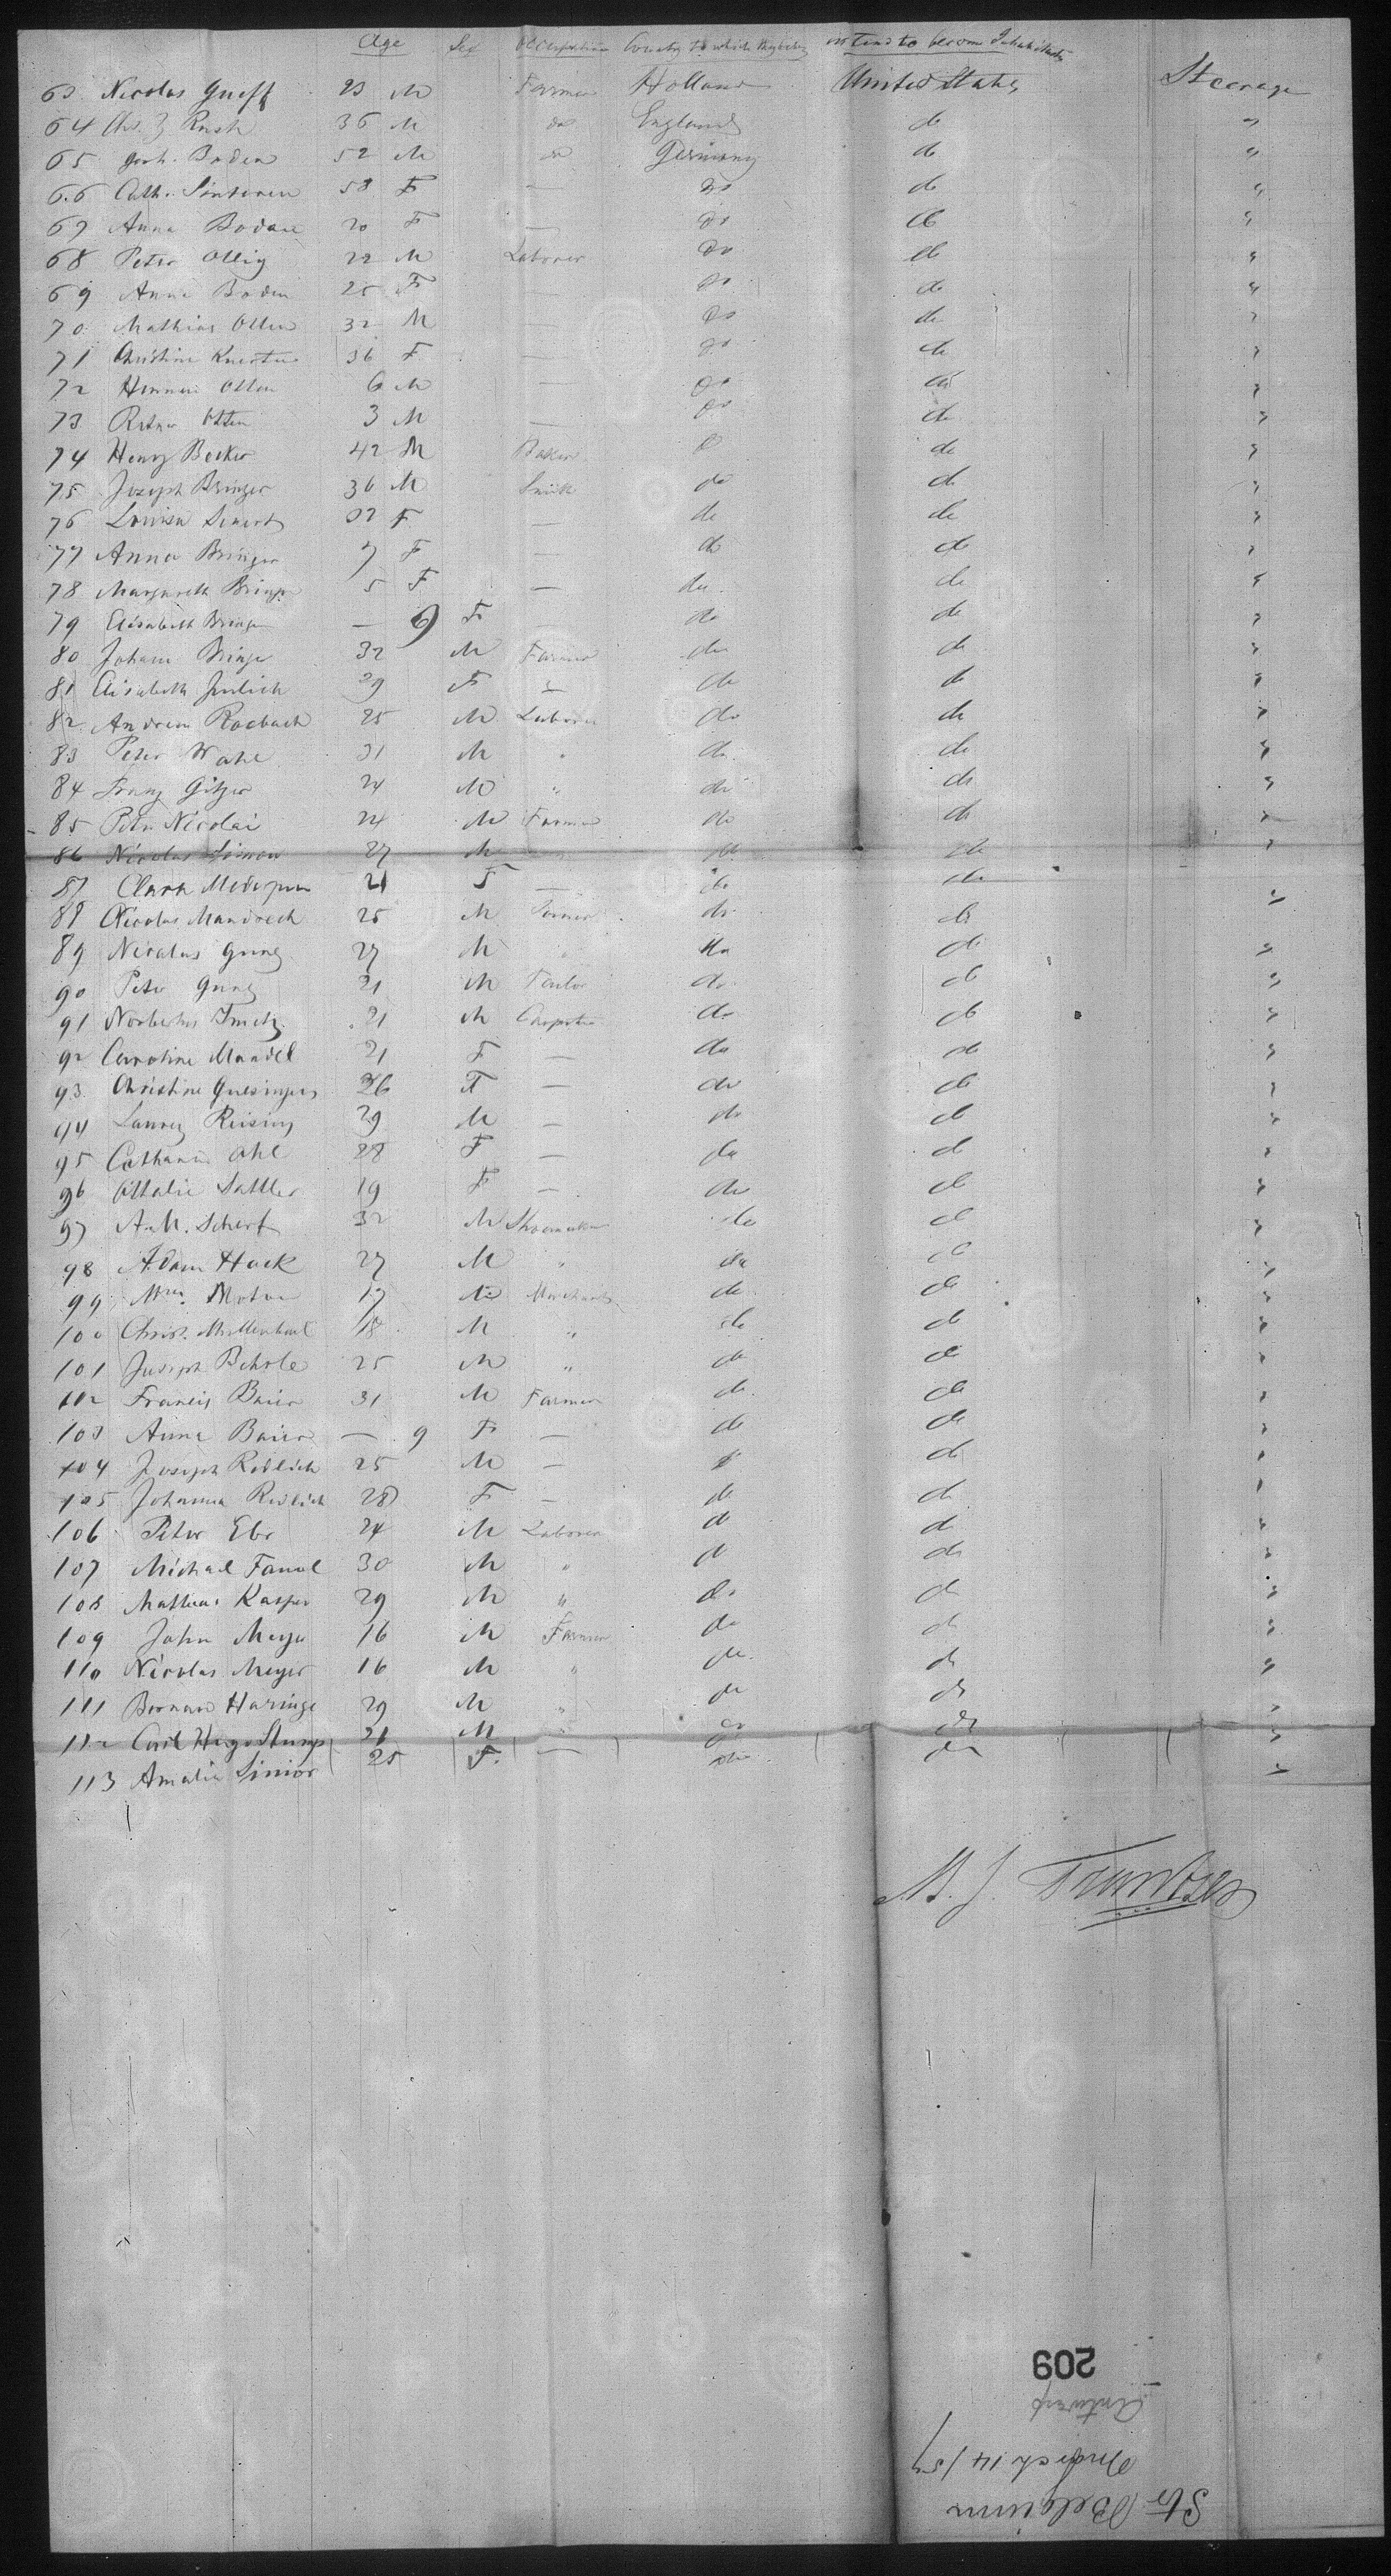 Age Sex Occupation Country to which they belong intend to become Inhabitants
63 Nicolas Gueff 23 M Farmer Holland United States Steerage
64 Chs. Rush 36 M do England do "
65 Joh. Boden 52 M do Germany do "
66 Cath. 58 F — do do "
67 Anna Boden 20 F — do do "
68 Peter Ollig 22 M Laborer do do "
69 Anna Boden 25 F — do do "
70 Mathias Otten 32 M — do do "
71 Christine 36 F — do do "
72 Otten 6 M — do do "
73 Otten 3 M — do do "
74 Henry Becker 42 M Baker do do "
75 Joseph Bringer 36 M Smith do do "
76 Louisa 32 F — do do "
77 Anna Bringer 7 F — do do "
78 Margareth Bringer 5 F — do do "
79 Elisabeth Bringer — 9 F do do "
80 Johann Bringer 32 M Farmer do do "
81 Elisabeth Julich 29 F — do do "
82 Andreas Rosbach 25 M Laborer do do "
83 Peter Wahl 31 M " do do "
84 Franz Gitzer 24 M " do do "
85 Peter Nicolai 24 M Farmer do do "
86 Nicolas Simon 27 M do do "
87 Clara 21 F — do do "
88 Nicolas 25 M Farmer do do "
89 Nicolas Gung 27 M " do do "
90 Peter Gung 21 M Tailor do do "
91 Norbertus 21 M Carpenter do do "
92 Caroline Mandel 21 F — do do "
93 Christine 26 F — do do "
94 Reising 29 M — do do "
95 Catharine Ohl 28 F — do do "
96 Ottalie Sattler 19 F — do do "
97 A. M. Scherf 32 M Shoemaker do do "
98 Adam Hack 27 M " do do "
99 17 M Merchant do do "
100 Christ. 18 M " do do "
101 Joseph Behrle 25 M " do do "
102 Francis Baier 31 M Farmer do do "
103 Anna Baier — 9 F — do do "
104 Joseph Redlich 25 M — do do "
105 Johanna Redlich 28 F — do do "
106 Peter Ebr 24 M Laborer do do "
107 Michael 30 M " do do "
108 Mathias Kasper 29 M " do do "
109 John Meyer 16 M Farmer do do "
110 Nicolas Meyer 16 M " do do "
111 Bernard Haringe 29 M " do do "
112 Carl Hugo Stumpf 21 M " do do "
113 Amalie Simior 25 F. — do do "
209
Antwerp
March 14/57
Str Belgium